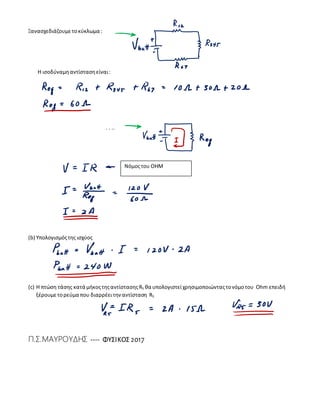 Ξανασχεδιάζουμε το κύκλωμα :
R₁₂
V_batt
R₃₄₅
R₆₇
Η ισοδύναμη αντίσταση είναι:
R_eq = R₁₂ + R₃₄₅ + R₆₇ = 10Ω + 30Ω + 20Ω
R_eq = 60Ω
V_batt I R_eq
V = IR Νόμος του ΟΗΜ
I = V_batt / R_eq = 120 V / 60 Ω
I = 2A
(b) Υπολογισμός της ισχύος
P_batt = V_batt · I = 120V · 2A
P_batt = 240 W
(c) Η πτώση τάσης κατά μήκος της αντίστασης R₅ θα υπολογιστεί χρησιμοποιώντας το νόμο του Ohm επειδή
ξέρουμε το ρεύμα που διαρρέει την αντίσταση R₅
V_R5 = IR₅ = 2A · 15Ω V_R5 = 30V
Π.Σ.ΜΑΥΡΟΥΔΗΣ ---- ΦΥΣΙΚΟΣ 2017